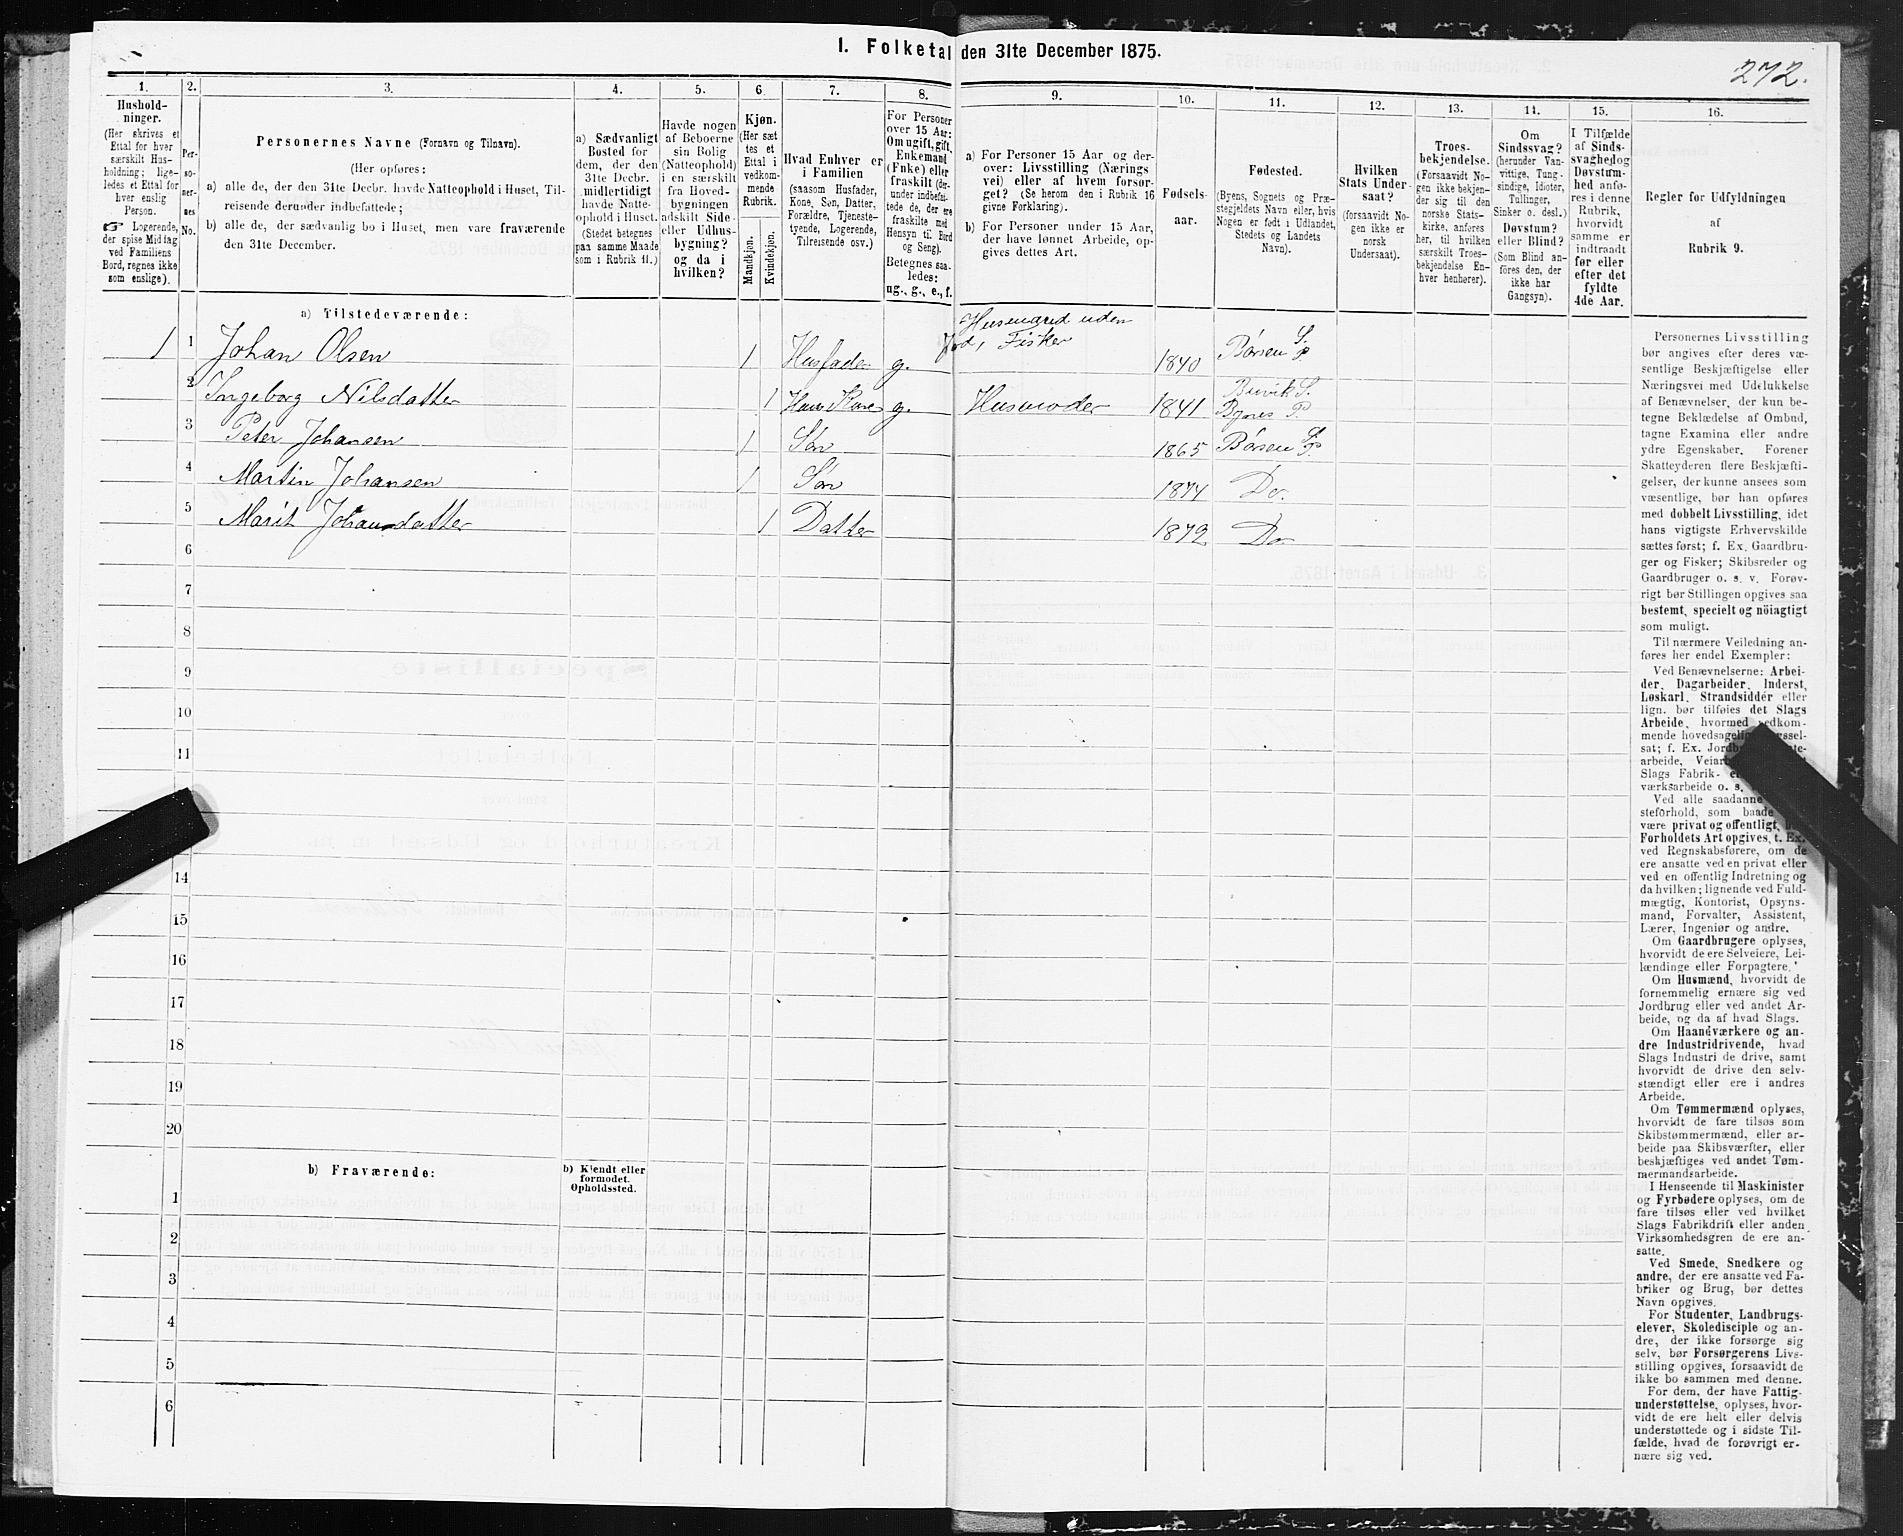 1. Folketal den 31te December 1875.
272.
1.
2.
3.
4.
5.
6
7.
8.
9.
10.
11.
12.
13.
14.
15.
16.
Hushold-
ninger.
(Her skrives et
Ettal for hver
særskilt Hus-
holdning; lige-
ledes et Ettal for
hver enslig
Person.
☞ Logerende,
der spise Middag
ved Familiens
Bord, regnes ikke
som enslige).
Per-
so-
ner-
nes
No.
Personernes Navne (Fornavn og Tilnavn).
(Her opføres:
a) alle de, der den 31te Decbr. havde Natteophold i Huset, Til-
reisende derunder indbefattede;
b) alle de, der sædvanlig bo i Huset, men vare fraværende
den 31te December.
a) Sædvanligt
Bosted for
dem, der den
31te Decbr.
midlertidigt
havde Natte-
ophold i Huset.
(Stedet betegnes
paa samme Maade
som i Rubrik 11.)
Havde nogen
af Beboerne
sin Bolig
(Natteophold)
i en særskilt
fra Hoved-
bygningen
adskilt Side-
eller Udhus-
bygning?
og da i
hvilken?
Kjøn.
(Her sæt
tes et
Ettal i
vedkom-
mende
Rubrik.
Mandkjøn.
Kvindekjøn.
Hvad Enhver er
i Familien
(saasom Husfader,
Kone, Søn, Datter,
Forældre, Tjeneste-
tyende, Logerende,
Tilreisende osv.)
For Personer
over 15 Aar:
Om ugift, gift,
Enkemand
(Enke) eller
fraskilt (der-
under indbefat-
tede de, der ere
fraskilte med
Hensyn til Bord
og Seng).
Betegnes saa-
ledes:
ug., g., e., f.
a) For Personer 15 Aar og der-
over: Livsstilling (Nærings
vei) eller af hvem forsør-
get? (Se herom den i Rubrik 16
givne Forklaring).
b) For Personer under 15 Aar,
der have lønnet Arbeide, op-
gives dettes Art.
Fødsels-
aar.
Fødested.
(Byens, Sognets og Præ-
stegjeldets Navn eller, hvis
Nogen er født i Udlandet,
Stedets og Landets
Navn).
Hvilken
Stats Under-
saat?
(forsaavidt No-
gen ikke er
norsk
Undersaat).
Troes-
bekjendelse.
(Forsaavidt No-
gen ikke bekjen-
der sig til den
norske Stats-
kirke, anføres
her, til hvilken
særskilt Troes-
bekjendelse En-
hver henhører).
Om
Sindssvag?
(herunder Van-
vittige, Tung-
sindige, Idioter,
Tullinger,
Sinker o. desl.)
Døvstum?
eller Blind?
(Som Blind an-
føres den, der
ikke har
Gangsyn).
I Tilfælde
af Sinds-
svaghed og
Døvstum-
hed anfø-
res i denne
Rubrik,
hvorvidt
samme er
indtraadt
før eller
efter det
fyldte
4de Aar.
Regler for Udfyldningen
af
Rubrik 9.
a) Tilstedeværende:
1 1 Johan Olsen 1 Husfader g. Husmand uden
Jord, Fisker 1840 Børsen S. P
2 Ingeborg Nilsdatter 1 Hans Kone g. Husmoder 1841 Buvik S.
Bynes P.
3 Peter Johansen 1 Søn 1865 Børsen S. P.
4 Martin Johansen 1 Søn 1874 Do.
5 Marit Johansdatter 1 Datter 1872 Do
6
7
8
9
10
11
14
15
16
17
18
19
20
b) Fraværende:
b) Kjendt eller
formodet.
Opholdssted.
1
2
3
4
5
6
Personernes Livsstilling
bør angives efter deres væ-
sentlige Beskjæftigelse eller
Næringsvei med Udelukkelse
af Benævnelser, der kun be-
tegne Beklædelse af Ombud,
tagne Examina eller andre
ydre Egenskaber. Forener
Skatteyderen flere Beskjæfti-
gelser, der kunne ansees som
væsentlige, bør han opføres
med dobbelt Livsstilling, idet
hans vigtigste Erhvervskilde
sættes først; f. Ex. Gaardbru-
ger og Fisker; Skibsreder og
Gaardbruger o. s. v. Forøv-
rigt bør Stillingen opgives saa
bestemt, specielt og nöiagtigt
som muligt.
Til nærmere Veiledning an-
føres her endel Exempler:
Ved Benævnelserne: Arbei-
der, Dagarbeider, Inderst,
Løskarl, Strandsidder eller
lign. bør tilføies det Slags
Arbeide, hvormed vedkom-
mende hovedsagelig
sat; f. Ex.
arbeide,
Slags Fabrik-
værksarbeide o. s.
Ved alle saadanne
steforhold, som baade
være privat og offentligt,
Forholdets Art opgives, t. Ex.
ved Regnskabsførere, om de
ere ansatte ved en privat eller
ved en offentlig Indretning og
da hvilken; lignende ved Fuld-
mægtig, Kontorist, Opsyns-
mand, Forvalter, Assistent,
Lærer, Ingeniør og andre.
Om Gaardbrugere oplyses,
hvorvidt de ere Selveiere, Lei-
lændinge eller Forpagtere.
Om Husmænd, hvorvidt de
fornemmelig ernære sig ved
Jordbrug eller ved andet Ar-
beide, og da af hvad Slags.
Om Haandværkere og an-
dre Industridrivende, hvad
Slags Industri de drive, samt
hvorvidt de drive den selv-
stændigt eller ere i andres
Arbeide.
Om Tømmermænd oplyses,
hvorvidt de fare tilsøs som
Skibstømmermænd, eller ar-
beide paa Skibsværfter, eller
beskjæftiges ved andet Tøm-
mermandsarbeide.
I Henseende til Maskinister
og Fyrbødere oplyses, om de
fare tilsøs eller ved hvilket
Slags Fabrikdrift eller anden
Virksomhedsgren de ere an-
satte.
Ved Smede, Snedkere og
andre, der ere ansatte ved Fa-
briker og Brug, bør dettes
Navn opgives.
For Studenter, Landbrugs-
elever, Skoledisciple og an-
dre, der ikke forsørge sig
selv, bør Forsørgerens Livs-
stilling opgives, forsaavidt de
ikke bo sammen med denne.
For dem, der have Fattig-
understøttelse, oplyses, hvor-
vidt de ere helt eller delvis
understøttede og i sidste Til-
fælde, hvad de forøvrigt er-
nære sig ved.